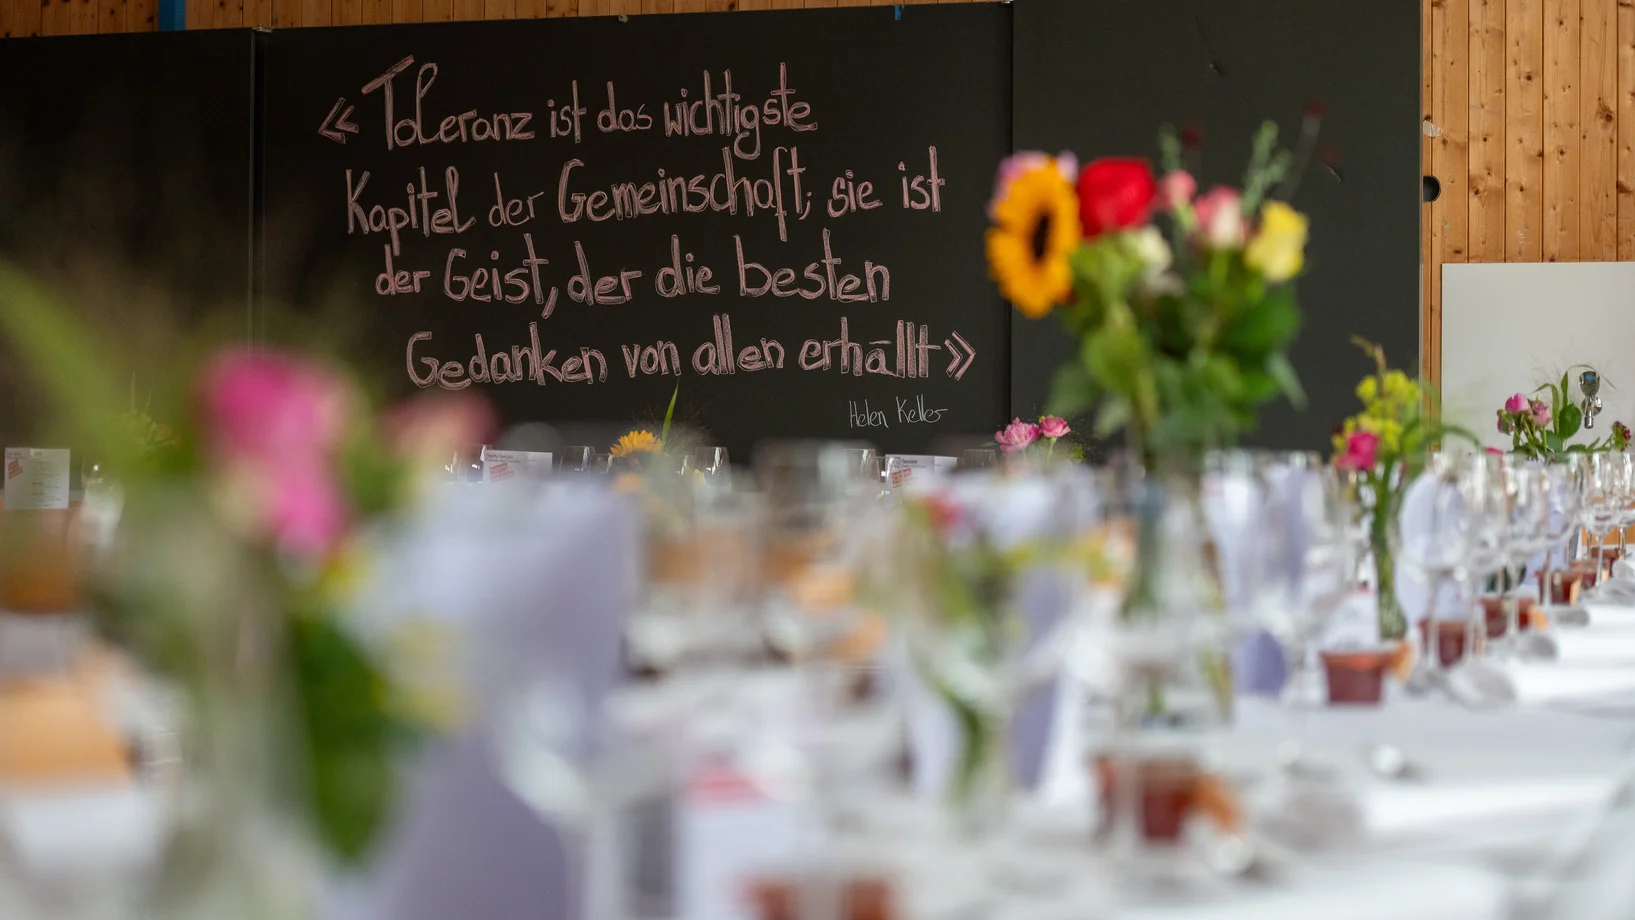 « Toleranz ist das wichtigste
Kapitel der Gemeinschaft; sie ist
der Geist, der die besten
Gedanken von allen erhāllt »
Helen Keller